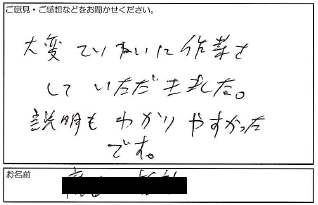 ご意見・ご感想などをお聞かせください。
大変ていねいに作業を
していただきました。
説明もわかりやすかった
です。
お名前